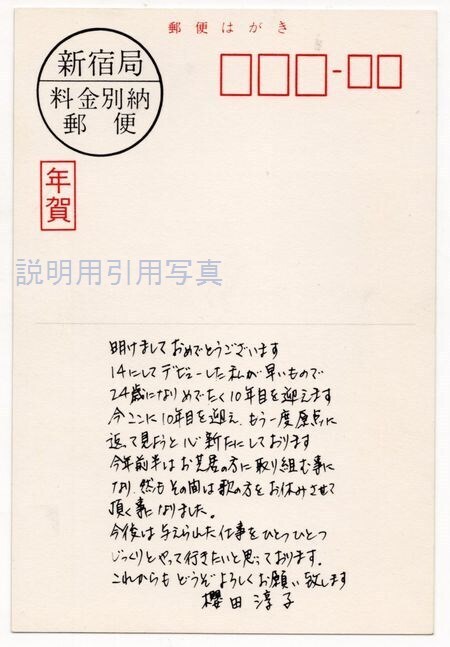 郵便はがき
新宿局
料金別納
郵便
年賀
説明用引用写真
明けましておめでとうございます
14にしてデビューした私が早いもので
24歳になりめでたく10年目を迎えます
今ここに10年目を迎え、もう一度原点に
返って見ようと心新たにしております
今年前半はお芝居の方に取り組む事に
なり、然もその間は歌の方をお休みさせて
頂く事になりました。
今後は与えられた仕事をひとつひとつ
じっくりとやって行きたいと思っております。
これからもどうぞよろしくお願い致します
櫻田淳子